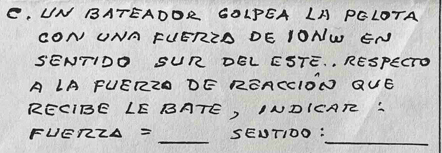 C. UN BATEADOR GOLPEA LA PELOTA
CON UNA FUERZA DE 10NW EN
SENTIDO SUR DEL ESTE.. RESPECTO
A LA FUERZA DE REACCIÓN QUE
RECIBE LE BATE, INDICAR :
FUERZA = _____ SENTIDO: __________